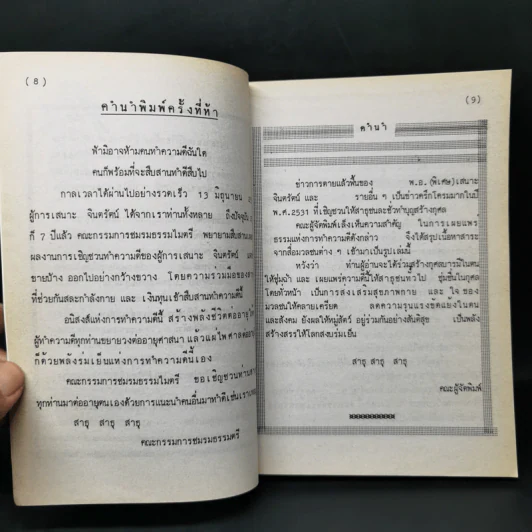 (8)
คำนำพิมพ์ครั้งที่ห้า
ฟ้ามิอาจห้ามคนทำความดีฉันใด
คนก็พร้อมที่จะสืบสานทำดีสืบไป
กาลเวลาได้ผ่านไปอย่างรวดเร็ว 13 มิถุนายน
ผู้การเสนาะ จินตรัตน์ ได้จากเราท่านทั้งหลาย ถึงปัจจุบัน
ก็ 7 ปีแล้ว คณะกรรมการชมรมธรรมไมตรี พยายามสืบสาน
ผลงานการเชิญชวนทำความดีของผู้การเสนาะ จินตรัตน์
ขายบ้าง ออกไปอย่างกว้างขวาง โดยความร่วมมือของ
ที่ช่วยกันสละกำลังกาย และ เงินทุนเข้าสืบสานทำความดีนี้
อนิสงส์แห่งการทำความดีนี้ สร้างพลังชีวิตต่ออายุ
ผู้ทำความดีทุกท่านขยายวงต่ออายุศาสนา แล้วแผ่ไพศาลต่อ
ก็ด้วยพลังร่มเย็นแห่งการทำความดีนี้เอง
คณะกรรมการชมรมธรรมไมตรี ขอเชิญชวนท่าน
ทุกท่านมาต่ออายุตนเองด้วยการแนะนำคนอื่นมาทำดีเช่นเรา
สาธุ สาธุ สาธุ
คณะกรรมการชมรมธรรมตรี
(9)
คำนำ
ข่าวการตายแล้วฟื้นของ พ.อ.(พิเศษ)เสนาะ
จินตรัตน์ และ รายอื่น ๆ เป็นข่าวครึกโครมมากในปี
พ.ศ.2531 ที่เชิญชวนให้สาธุชนและชั่วทำบุญสร้างกุศล
คณะผู้จัดพิมพ์เล็งเห็นความสำคัญ ในการเผยแพร่
ธรรมแห่งการทำความดีดังกล่าว จึงได้สรุปเนื้อหาสาระ
จากสื่อมวลชนต่าง ๆ เข้ามาเป็นรูปเล่มนี้
หวังว่า ท่านผู้อ่านจะได้ร่วมสร้างกุศลบารมีในตน
ให้ชุ่มฉ่ำ และ เผยแพร่ความดีนี้ให้สาธุชนทั่วไป ชุ่มชื่นในกุศล
โดยทั่วหน้า เป็นการส่งเสริมสุขภาพกาย และ ใจ ของ
มวลชนให้คลายเครียด ลดความรุนแรงขัดแย้งในตน
และสังคม ยังผลให้หมู่สัตว์ อยู่ร่วมกันอย่างสันติสุข เป็นพลัง
สร้างสรรให้โลกสงบร่มเย็น
สาธุ สาธุ สาธุ
คณะผู้จัดพิมพ์